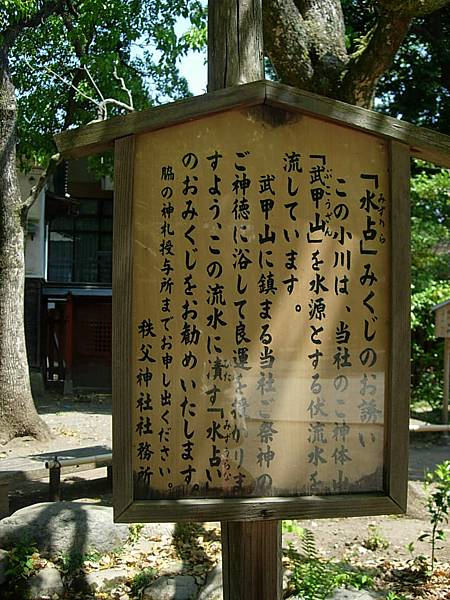 「水占」みくじのお誘い
みずうら
この小川は、当社のご神体山
「武甲山」を水源とする伏流水を
ぶこうざん
流しています。
武甲山に鎮まる当社ご祭神の
ご神徳に浴して良運を授かりま
すよう、この流水に潰す「水占い」
みずうらな
のおみくじをお勧めいたします。
脇の神札授与所までお申し出ください。
秩父神社社務所